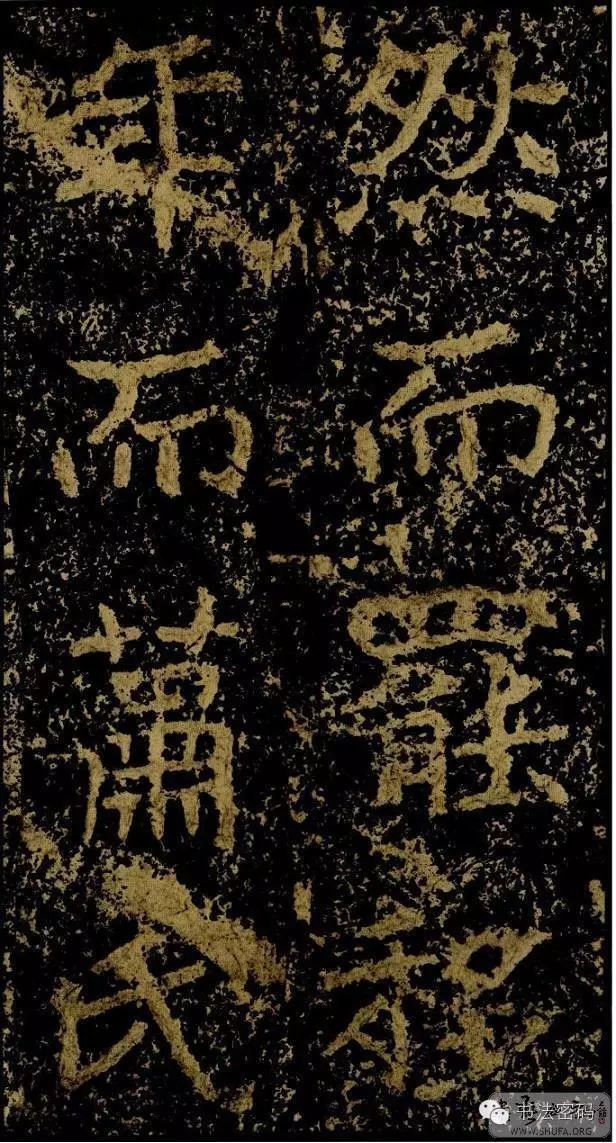 然而罷程
年而蕭氏
书法密码
WWW.SHUFA.ORG